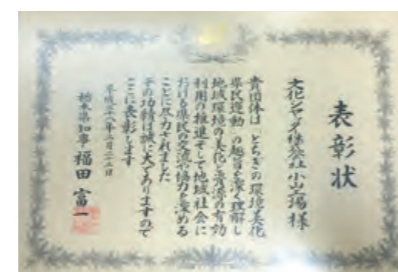 表彰状
文化シヤッター株式会社小山工場様
貴団体は「とちぎの環境美化
県民運動」の趣旨を深く理解し
地域環境の美化と資源の有効
利用の推進そして地域社会に
おける県民の交流や協力を深める
ことに尽力されました
その功績は誠に大でありますので
ここに表彰します
平成二十八年二月二十二日
栃木県知事 福田富一